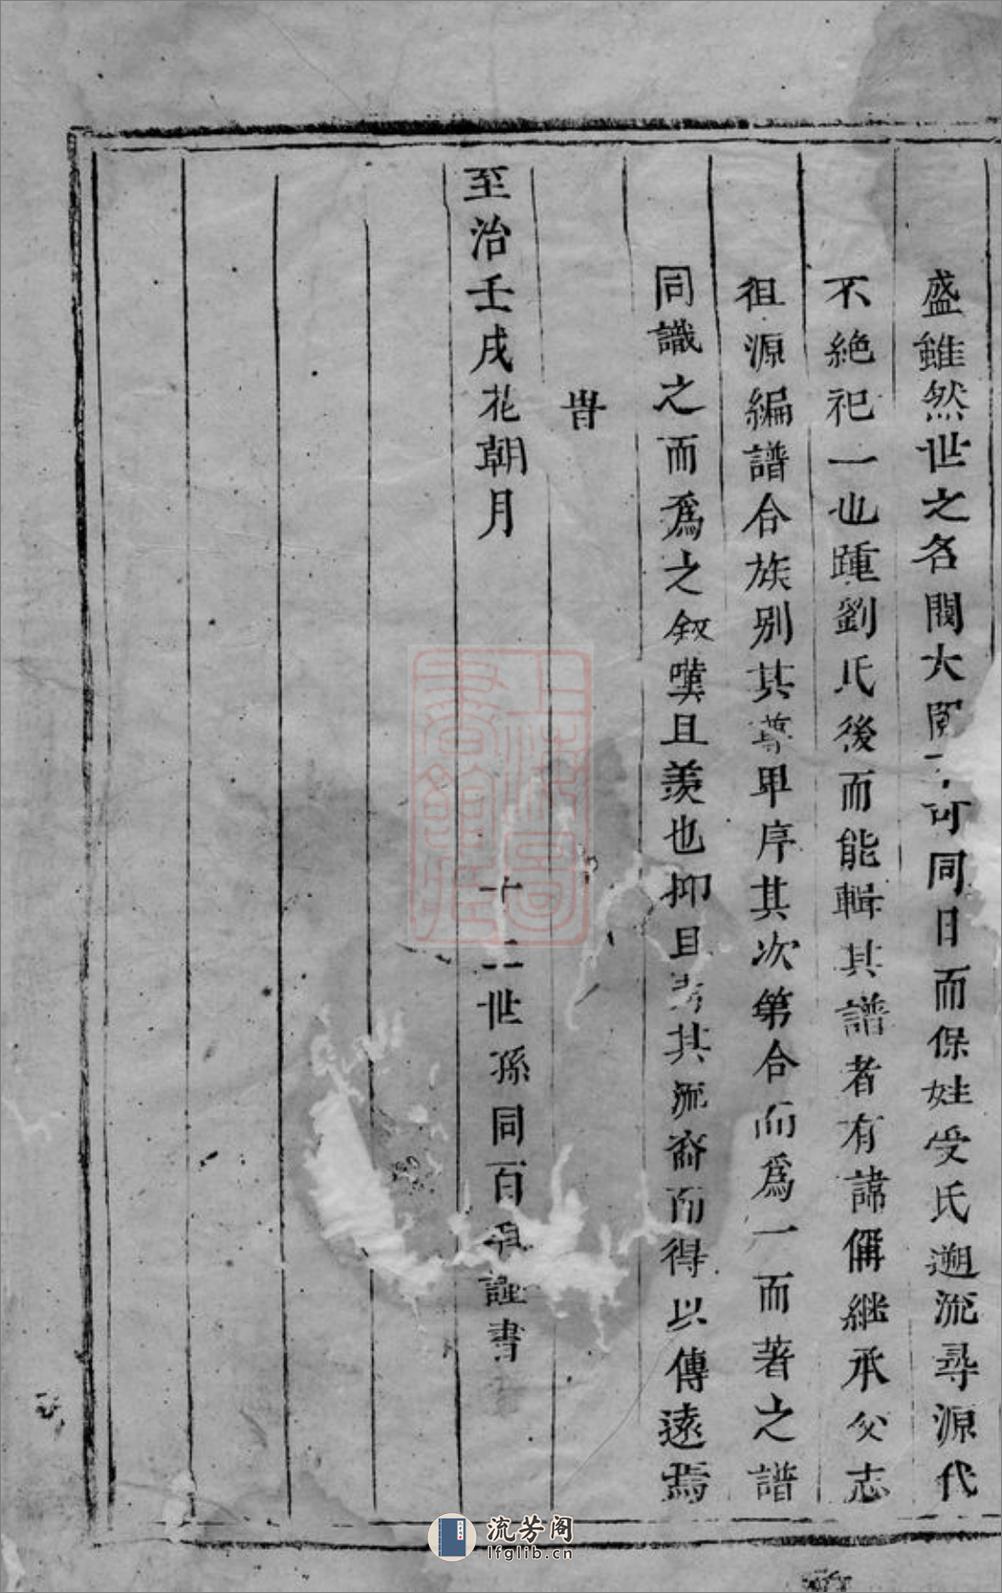 盛雖然世之名閥大可同日而保姓受氏遡流尋源代
不絶祀一也踵劉氏後而能輯其譜者有諱偁継承父志
徂源編譜合族别其尊卑序其次第合而爲一而著之譜
同識之而爲之叙嘆且羨也抑且其流裔而得以傳遠焉
旹
至治壬戌花朝月
十二世孫同百誕書
上海圖書館藏
流芳阁
lfglib.cn